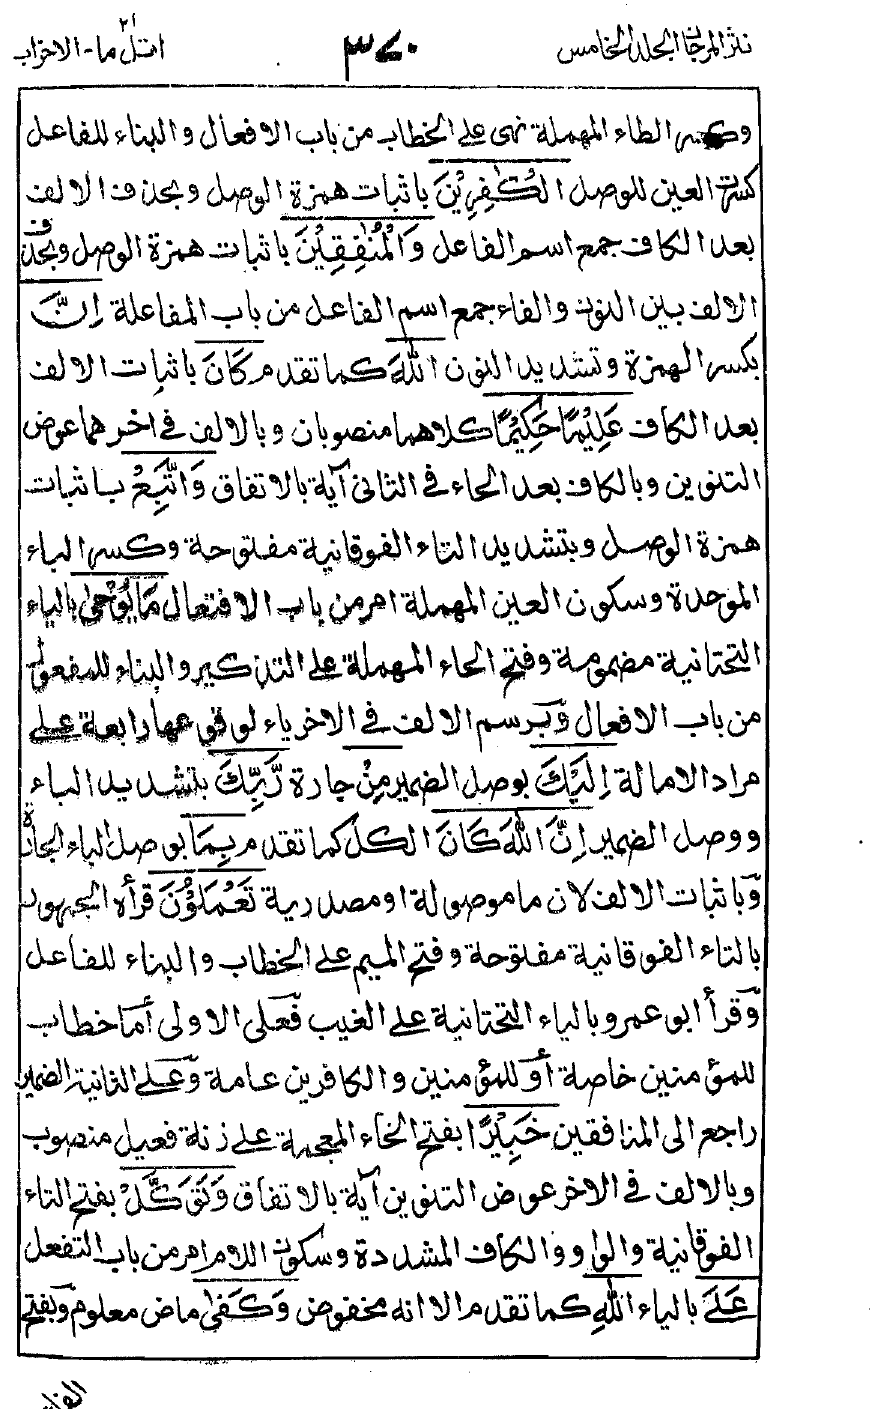 نثر المرجان المجلد الخامس
٣٧٠
اتل ما ۲۱ - الاحزاب
وكسر الطاء المهملة نهى على الخطاب من باب الافعال والبناء للفاعل
كسرت العين للوصل الْكٰفِرِيْنَ باثبات همزة الوصل وبحذف الالف
بعد الكاف جمع اسم الفاعل وَالْمُنٰفِقِيْنَ باثبات همزة الوصل وبحذف
الالف بين النون والفاء جمع اسم الفاعل من باب المفاعلة اِنَّ
بكسر الهمزة وتشديد النون اللّٰهَ كما تقدم كَانَ باثبات الالف
بعد الكاف عَلِيْمًا حَكِيْمًا كلاهما منصوبان وبالالف في اخرهما عوض
التنوين وبالكاف بعد الحاء في الثانى آية بالاتفاق وَاتَّبِعْ باثبات
همزة الوصل وبتشديد التاء الفوقانية مفتوحة وكسر الباء
الموحدة وسكون العين المهملة امر من باب الافتعال مَا يُوْحٰى بالياء
التحتانية مضمومة وفتح الحاء المهملة على التذكير والبناء للمفعول
من باب الافعال وبرسم الالف في الاخر ياء لوقوعها رابعة على
مراد الامالة اِلَيْكَ بوصل الضمير مِنْ جارة رَّبِّكَ بتشديد الباء
ووصل الضمير اِنَّ اللّٰهَ كَانَ الكل كما تقدم بِمَا بوصل الباء الجارة
وباثبات الالف لان ما موصولة او مصدرية تَعْمَلُوْنَ قرأه الجمهور
بالتاء الفوقانية مفتوحة وفتح الميم على الخطاب والبناء للفاعل
وقرأ ابو عمرو بالياء التحتانية على الغيب فعلى الاولى أما خطاب
للمؤمنين خاصة أو للمؤمنين والكافرين عامة وعلى الثانية الضمير
راجع الى المنافقين خَبِيْرًا بفتح الخاء المعجمة على زنة فعيل منصوب
وبالالف في الاخر عوض التنوين آية بالاتفاق وَتَوَكَّلْ بفتح التاء
الفوقانية والواو والكاف المشددة وسكون اللام امر من باب التفعل
عَلَى بالياء اللّٰهِ كما تقدم الا انه مخفوض وَكَفٰى ماض معلوم وبفتح
الفاء